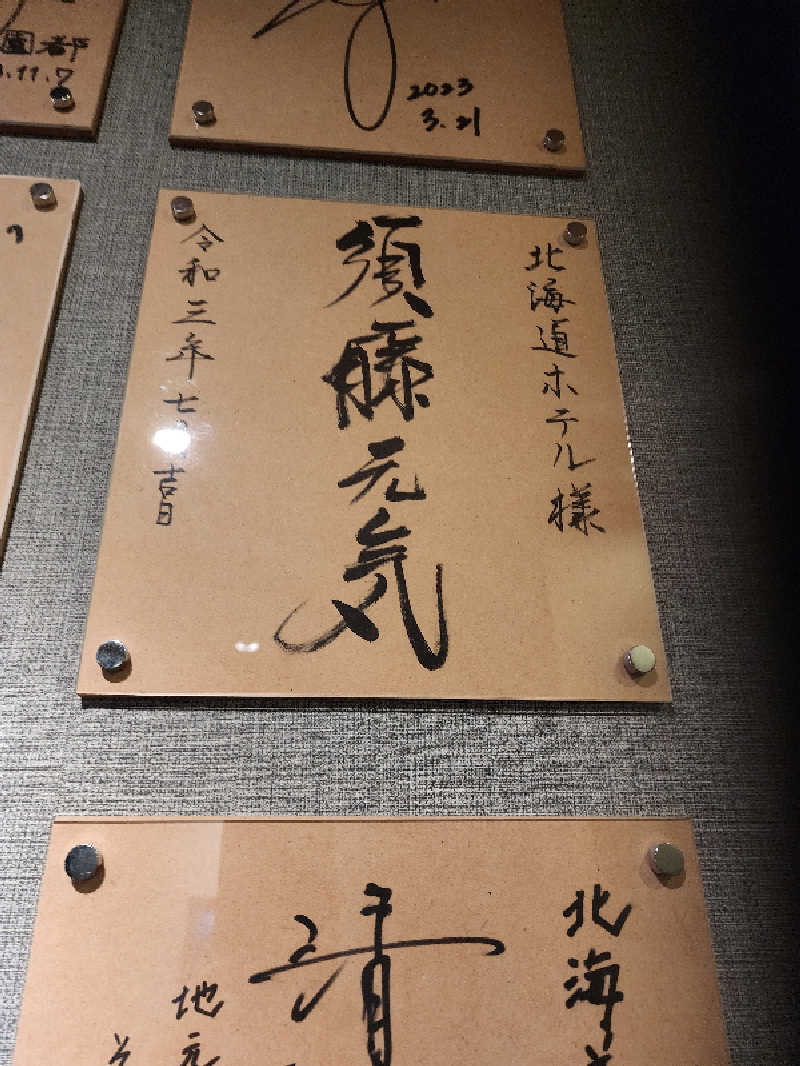 都
.11.7
2023
3.21
北海道ホテル様
須藤元気
令和三年七月吉日
北海
清
地元